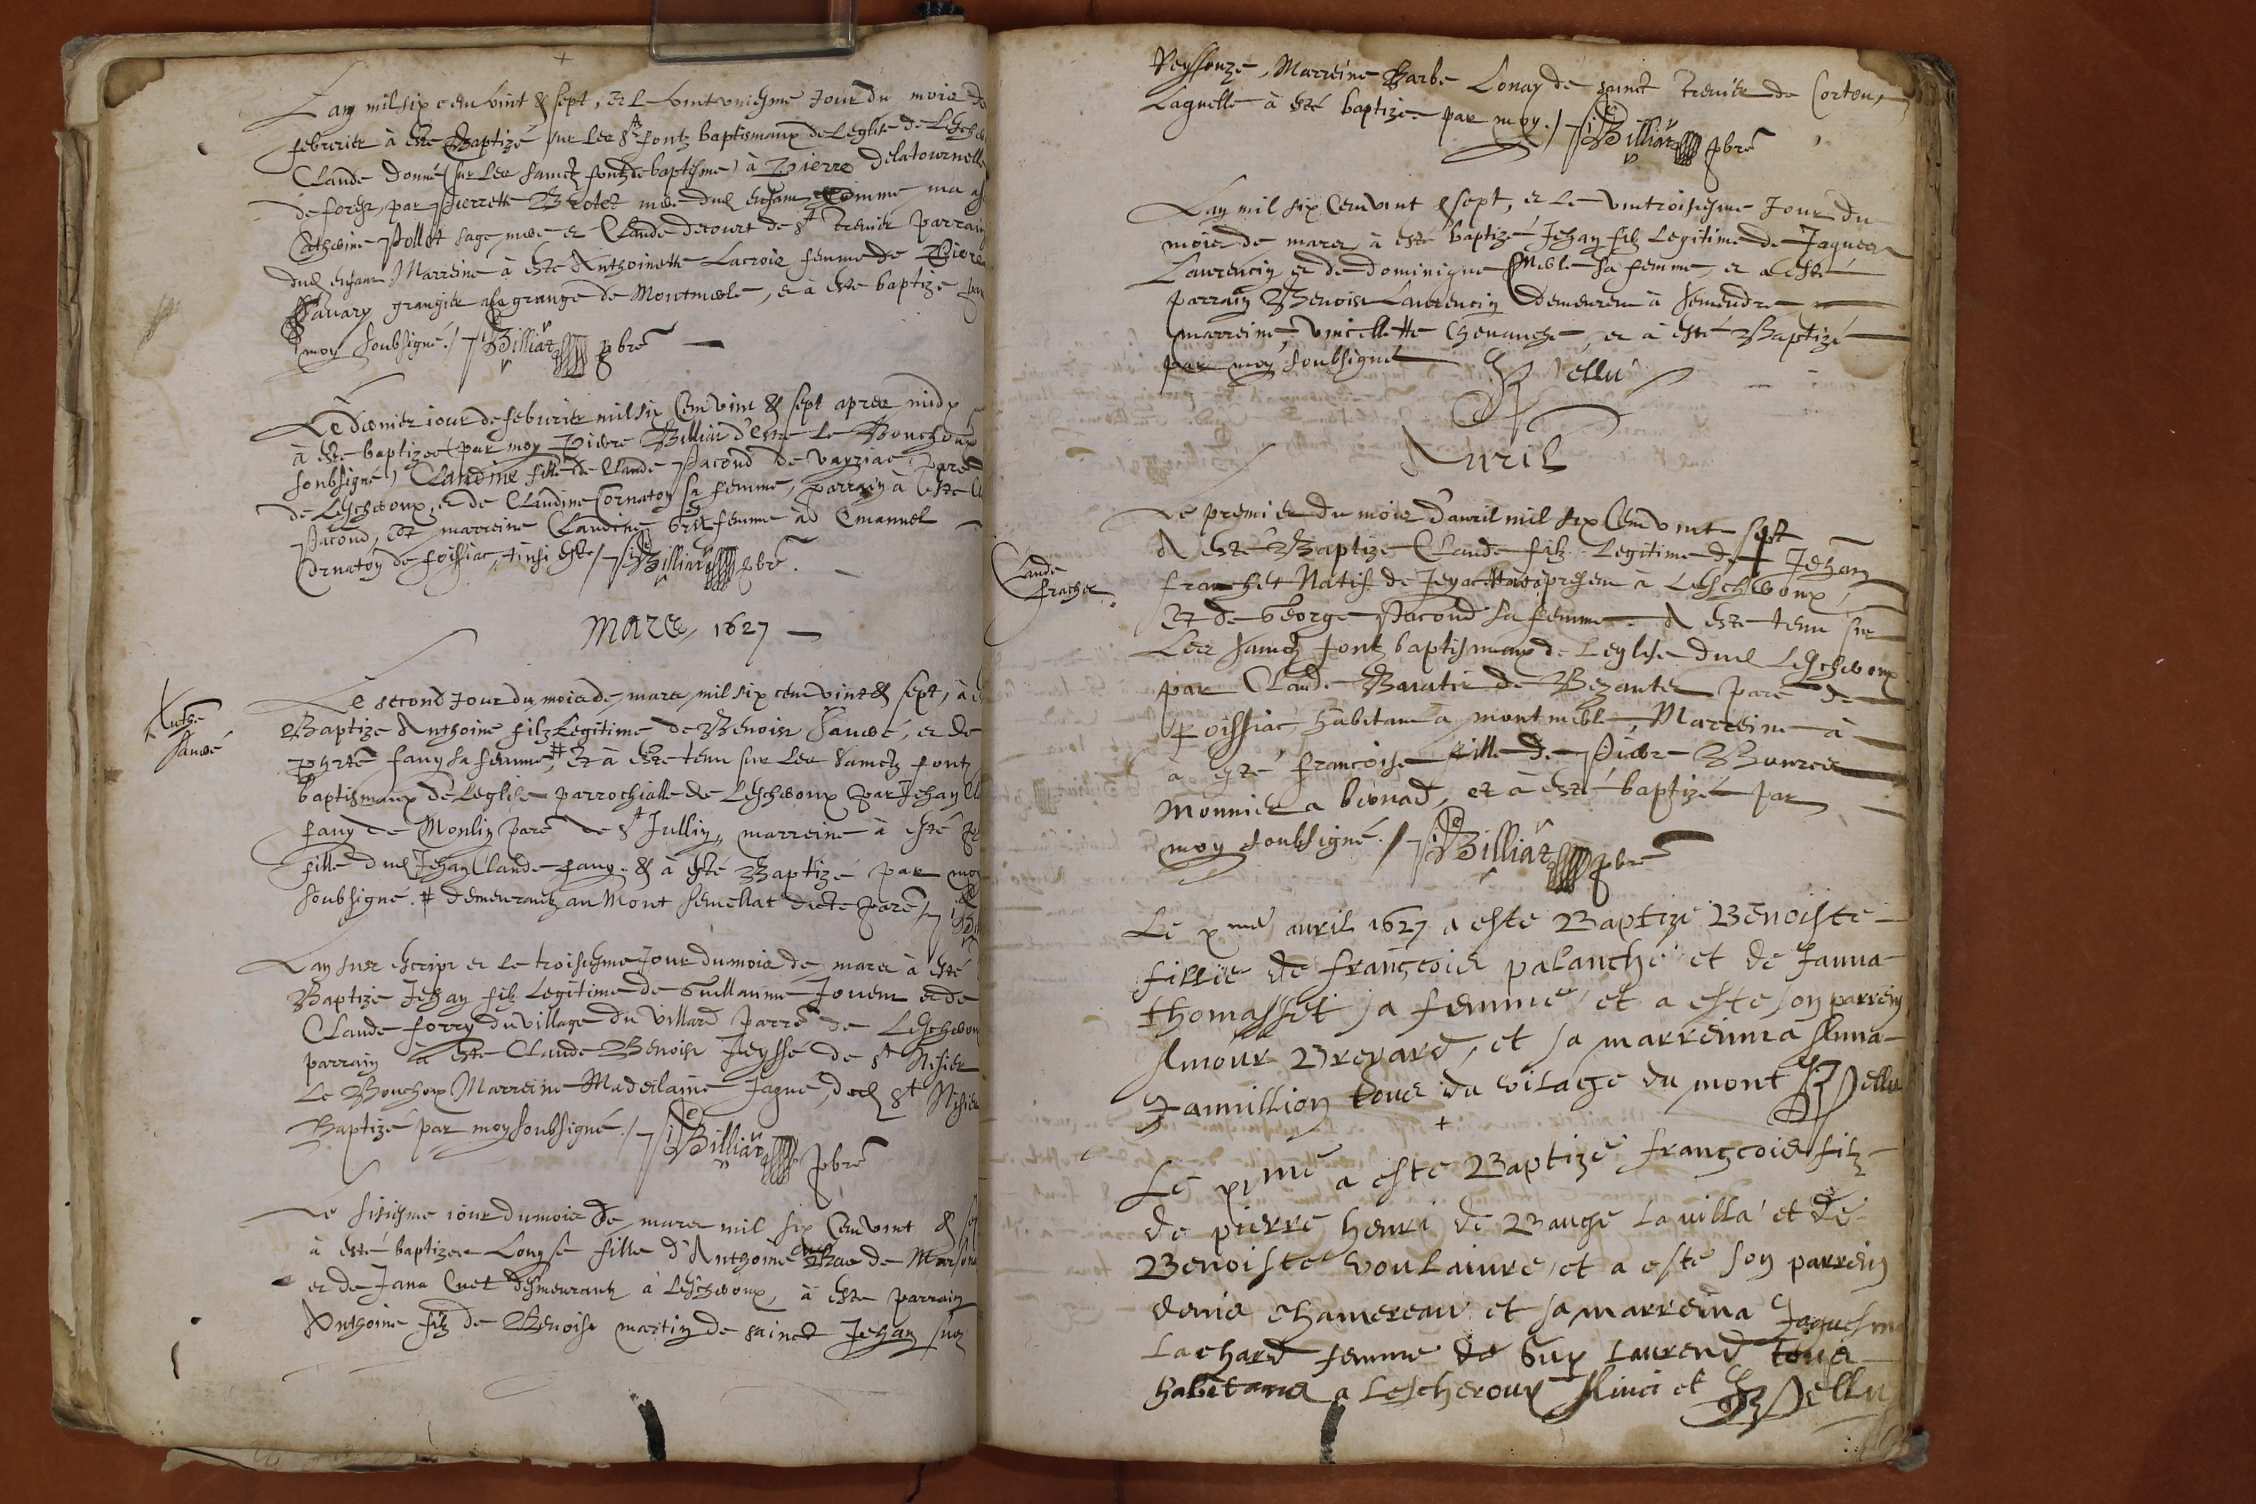 Lan mil six cent vint & sept, et le vintuniesme Jour du mois de
febvrier à este Baptizé sur les st fontz baptismaux de Leglise de Lescher
Claude donné (sur les sainctz fontz de baptesme) à Pierre delatournelle
de forest, par Pierrette Brolet mere dud enfant, comme ma
Catherine Pollet sage mere et Claude decourt de st Trenier parrain
dud enfant, Marreine à este Anthoinette Lacroix femme de Pierre
Savary grangier a la grange de Montmerle, et a este baptizé par
moy soubsigné. / Billiar pbre
Le dernier iour de feburier mil six cent vint & sept apres midy
à este baptizee (par moy Pierre Billiar d'estre le Bouchoux
soubsigné) Claudine fille de Claude Pacoud de vayziac, pare
de Lescheroux, et de Claudine Cornaton sa femme, parrain à este
Pacoud, et marreine Claudine femme ad Emanuel
Cornaton de foissiac, ainsi este / Billiar pbre.
Mars, 1627
Anthe
Sauvé
Le second Jour du mois de mars, mil six cent vint & sept, à e
Baptizé Anthoine filz Legitime de Benoist Sauvé, et de
fany sa femme, # Et à este tenu sur les sainctz fontz
baptismaux de Leglise parrochialle de Lescheroux par Jehan
fany de Moulin pare de st Jullin, marreine à esté
fille dud Jehan Claude fany. & à esté Baptizé par moy
soubsigné. # demeurantz au Mont semellat dicte pare /
Lan sus escript et le troisiesme Jour du mois de mars à esté
Baptizé Jehan filz Legitime de Guillaume Jouent et de
Claude forry du village du villard parre de Lescherou
parrain à este Claude Benoist Jeyssé de st Nisier
Le Bouchoux Marreine Madeslaine Jague, de st Nisier
Baptizé par moy soubsigné. / Billiar pbre
Le sisiesme iour du mois de mars mil six cent vint & sep
à esté baptizee Louyse fille d'Anthoine de Marsona
et de Jana Cuet demeurantz à Lescheroux, à este parrain
Anthoine filz de Benoist martin de sainct Jehan sur
Reyssouze, Marreine Barbe Lonay de sainct Trenier de Corton,
Laquelle à esté baptizé par moy. / Billiar pbre
Lan mil six Cent vint & sept, et le vintroisiesme Jour du
mois de mars à esté baptizé Jehan filz Legitime de Jaques
Laurencin et de dominique Merle sa femme, et a esté
parrain Benoist Laurencin demeurent à
marreine, vincellette Chenauche, et à esté Baptizé
par moy soubsigné Vellu
Auril
Le premier du mois d'auril mil six Cent vint sept
A este Baptizé Claude filz Legitime de Jehan
Claude
frachet
frachet Natif de present à Lescheroux,
Et de George Pacoud sa femme. A este tenu sur
Les sainctz fontz baptismaux de Leglise dud Lescheroux
par Claude Baratie de Bezantes pare de
foissiac, habitant a montmerle, Marreine à
à esté francoise fille de Pierre
Monnier a beonad, et à esté baptizé par
moy soubsigné. / Billiar pbre
Le xme auril 1627 a este Baptize Benoiste
fillie de françois palanche et de Janna
thomasset sa femme et a este son parrein
Amour Brevard, et sa marreinna Anna
Jannillion tous du vilage du mont Vellu
Le xime a este Baptize françois filz
de pierre henri de Bauge la villa et de
Benoiste voulaivre et a este son parrein
denis chamereau et sa marreina Jaquesma
Lachard femme de Guy Laurend tous
habitans a Lescheroux Ainci et Vellu